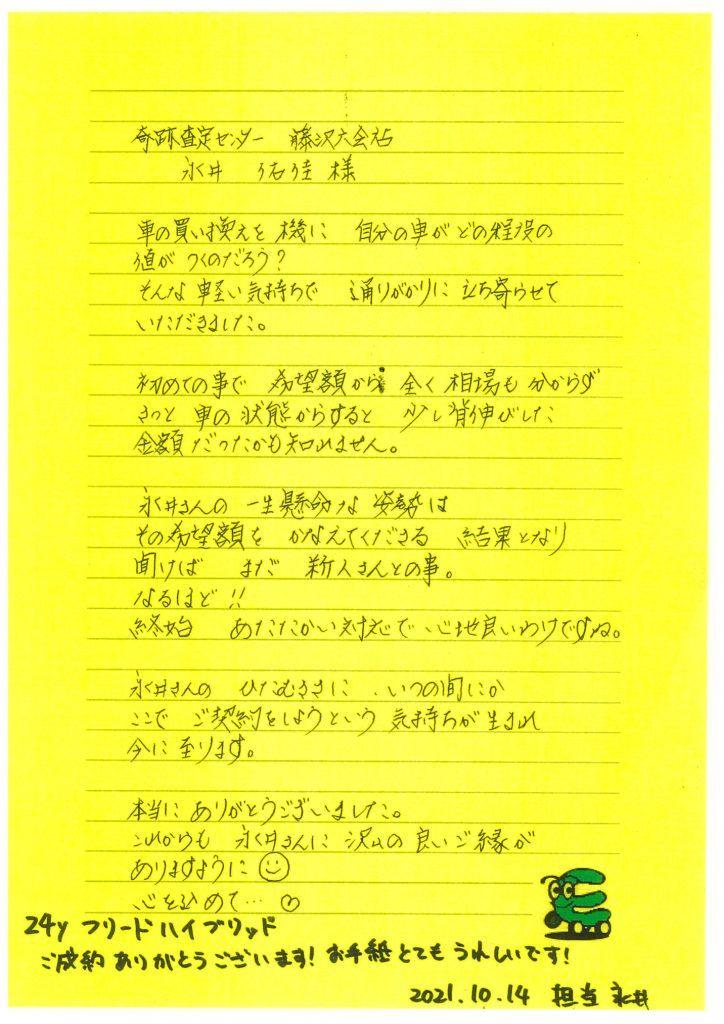 奇跡査定センター 藤沢大会話
永井 佑佳 様
車の買い換えを 機に 自分の車が どの程度の
値が つくのだろう?
そんな 軽い気持ちで 通りがかりに 立ち寄らせて
いただきました。
初めての事で 希望額から 全く 相場も 分からず
きっと 車の 状態からすると 少し背伸びした
金額だったかも知れません。
永井さんの 一生懸命な 姿勢は
その希望額を かなえてくださる 結果となり
聞けば まだ 新人さんとの事。
なるほど!!
終始 あたたかい対応で 心地良いわけですね。
永井さんの ひたむきさに、いつの間にか
ここで ご契約をしようという 気持ちが生まれ
今に至ります。
本当に ありがとうございました。
これからも 永井さんに 沢山の 良いご縁が
ありますように☺
心を込めて… ♡
24y フリードハイブリッド
ご成約ありがとうございます! お手紙とてもうれしいです!
2021.10.14 担当 永井